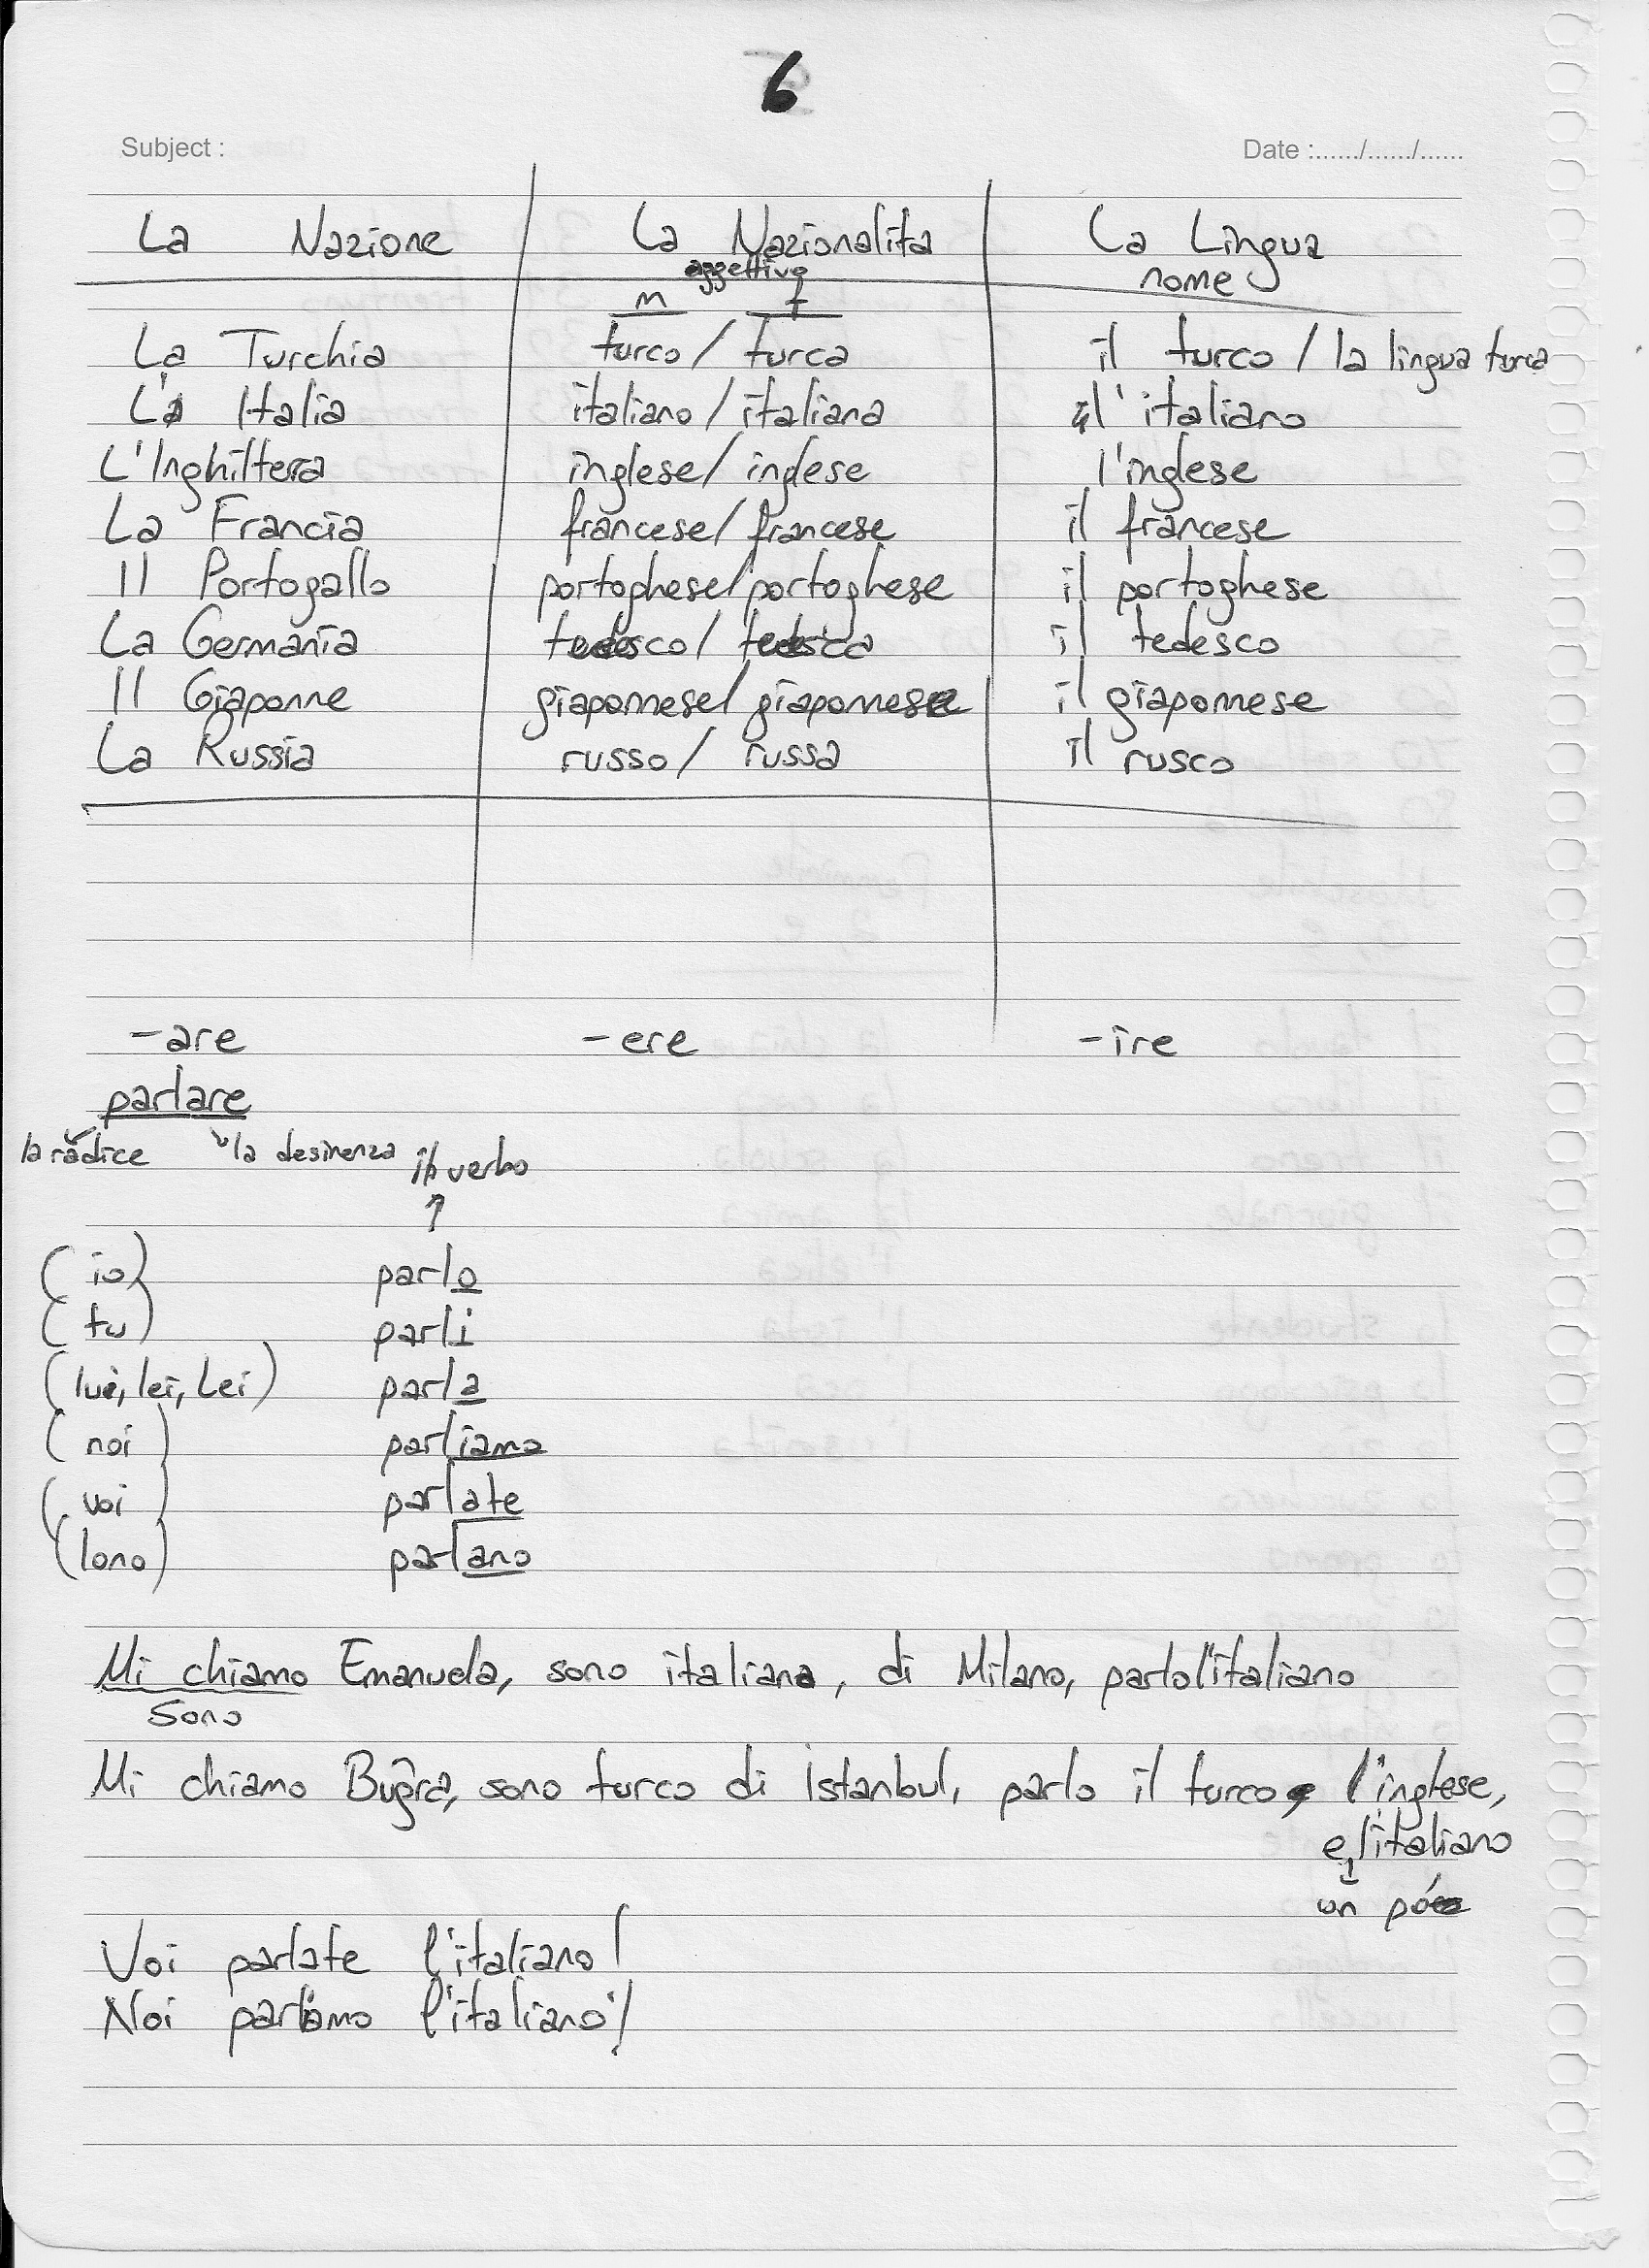 6
Subject : Date :....../....../......
La Nazione La Nazionalita La Lingua
aggettivo nome
m f
La Turchia turco / turca il turco / la lingua turca
L'a Italia italiano / italiana l'italiano
L'Inghilterra inglese / inglese l'inglese
La Francia francese / francese il francese
Il Portogallo portoghese / portoghese il portoghese
La Germania tedesco / tedesca il tedesco
Il Giaponne giaponnese / giaponnese il giaponnese
La Russia russo / russa il rusco
-are -ere -ire
parlare
la radice la desinenza il verbo
(io) parlo
(tu) parli
(lui, lei, Lei) parla
(noi) parliamo
(voi) parlate
(lono) parlano
Mi chiamo Emanuela, sono italiana, di Milano, parlo l'italiano
Sono
Mi chiamo Buğra, sono turco di İstanbul, parlo il turco, l'inglese,
e l'italiano
un pó
Voi parlate l'italiano!
Noi parliamo l'italiano!